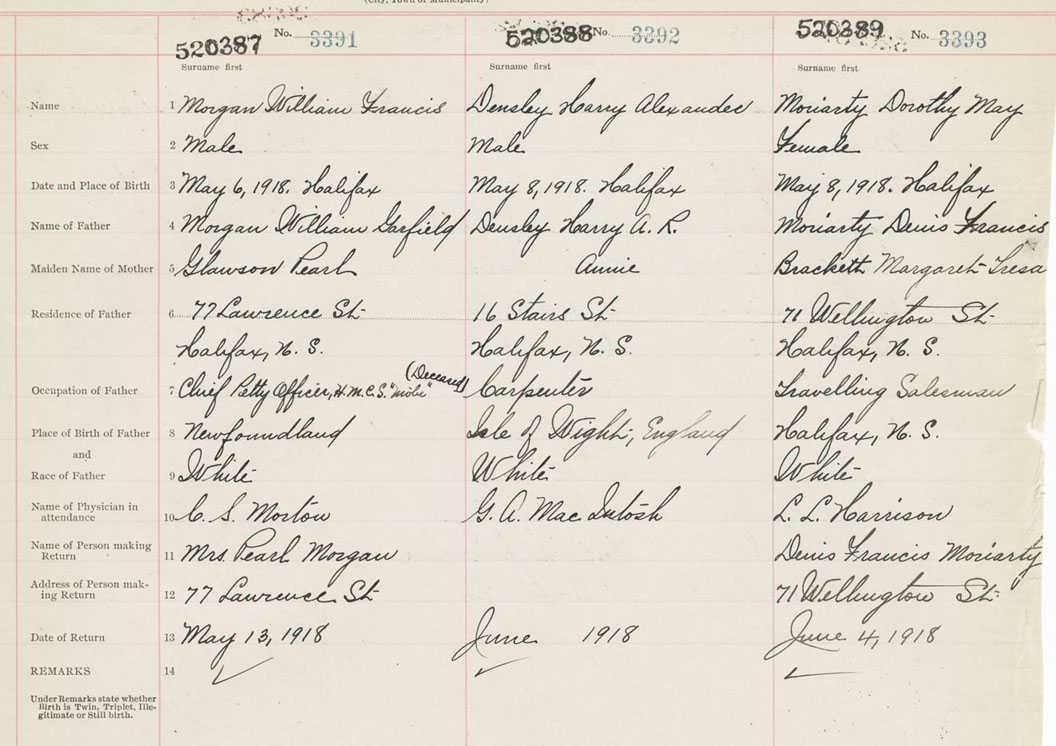 (City, Town or Municipality)
520387 No. 3391 520388 No. 3392 520389 No. 3393
Surname first Surname first Surname first
Name 1 Morgan William Francis Densley Harry Alexander Moriarty Dorothy May
Sex 2 Male Male Female
Date and Place of Birth 3 May 6, 1918. Halifax May 8, 1918. Halifax May 8, 1918. Halifax
Name of Father 4 Morgan William Garfield Densley Harry A. R. Moriarty Denis Francis
Maiden Name of Mother 5 Glawson Pearl Annie Brackett Margaret Tresa
Residence of Father 6 77 Lawrence St 16 Stairs St 71 Wellington St
Halifax, N. S. Halifax, N. S. Halifax, N. S.
(Deceased)
Occupation of Father 7 Chief Petty Officer, H.M.C.S. " " Carpenter Travelling Salesman
Place of Birth of Father 8 Newfoundland Isle of Wight, England Halifax, N. S.
and
Race of Father 9 White White White
Name of Physician in
attendance 10 C. S. Morton G. A. MacIntosh L. L. Harrison
Name of Person making
Return 11 Mrs. Pearl Morgan Denis Francis Moriarty
Address of Person mak-
ing Return 12 77 Lawrence St 71 Wellington St.
Date of Return 13 May 13, 1918 June 1918 June 4, 1918
REMARKS 14
Under Remarks state whether
Birth is Twin, Triplet, Ille-
gitimate or Still birth.